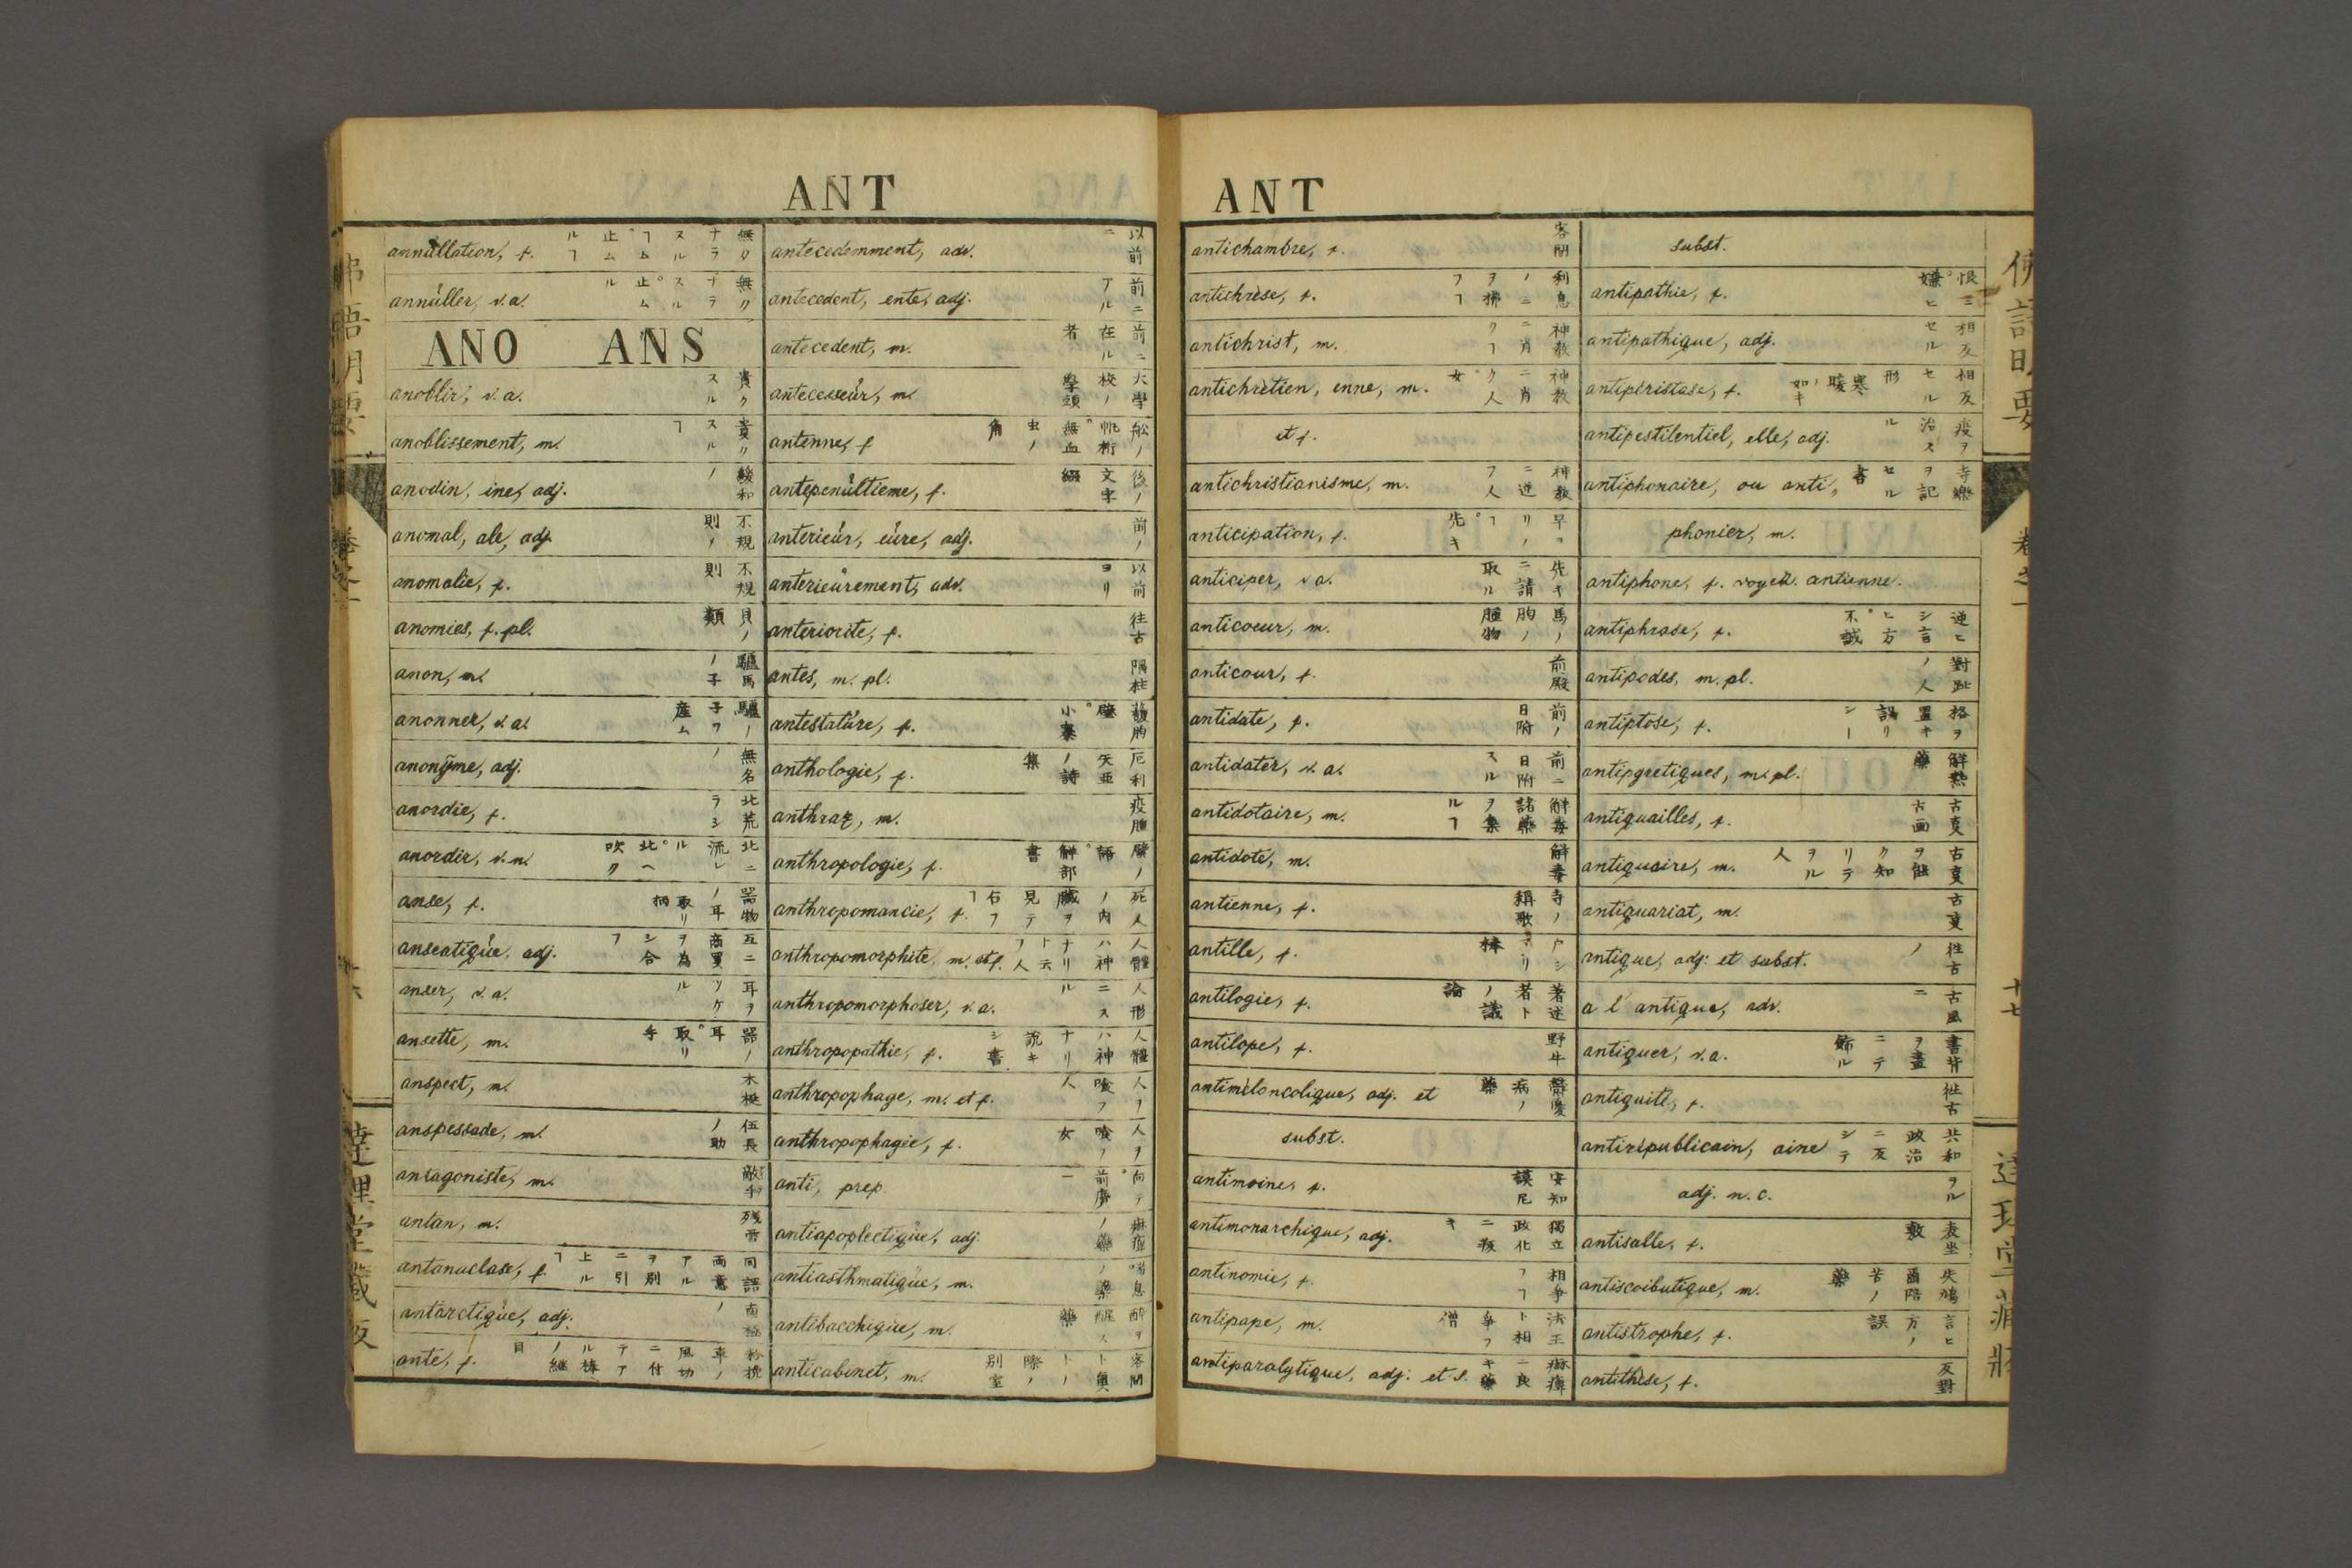 ANT
annullation, f. 無クナラスルヿ止ムルヿ
annüller, v.a. 無クナラスル。止ムル
ANO ANS
anoblir, v.a. 貴クスル
anoblissement, m. 貴クスルヿ
anodin, ine, adj. 緩和ノ
anomal, ale, adj. 不規則ノ
anomalie, f. 不規則
anomies, f. pl. 貝ノ類
anon, m. 驢馬ノ子
anonner, v.a. 驢ノ子ヲ産ム
anonÿme, adj. 無名ノ
anordie, f. 北荒ラシ
anordir, v.n. 北ニ流レル。北ヘ吹ク
anse, f. 器物ノ耳取リ柄
anseatiqüe, adj. 互ニ商買ヲ為シ合フ
anser, v.a. 耳ヲツケル
ansette, m. 器ノ耳。取リ手
anspect, m. 木梃
anspessade, m. 伍長ノ助
antagoniste, m. 敵手
antan, m.
antanaclase, f. 同語両意アルヲ別ニ引上ルヿ
antarctiqüe, adj. 南極ノ
ante, f.
antecedemment, adv. 以前ニ
antecedent, ente, adj. 前ニアル
antecedent, m. 前ニ在ル者
antecesseür, m. 大學校ノ學頭
antenne, f. 舩ノ帆桁。無血虫ノ角
antepenültieme, f. 後ノ文字綴
anterieür, eüre, adj. 前ノ
anterieürement, adv. 以前ヨリ
anteriorite, f. 往古
antes, m. pl. 隅柱
antestatüre, f.
anthologie, f. 厄利矢亜ノ詩集
anthrax, m. 疫腫
anthropologie, f.
anthropomancie, f. 死人ノ内臓ヲ見テ占フヿ
anthropomorphite, m. et f. 人體ハ神ナリト云フ人
anthropomorphoser, v.a. 人形ニスル
anthropopathie, f. 人體ハ神ナリ説キシ書
anthropophage, m. et f. 人ヲ喰フ人
anthropophagie, f. 人ヲ喰フ女
anti, prep.
antiapoplectiqüe, adj.
antiasthmatiqüe, m. 喘息ノ藥
antibacchiqüe, m. 醉ヲ醒ス藥
anticabinet, m.
ANT
antichambre, f. 客間
antichrèse, f. 利息ノニヲ拂フヿ
antichrist, m. 神教ニ背クヿ
antichrètien, enne, m. 神教ニ背ク人。女
et f.
antichristianisme, m. 神教ニ逆フ人
anticipation, f.
anticiper, v.a. 先キニ請取ル
anticoeur, m. 馬ノ胸ノ腫物
anticour, f. 前殿
antidate, f. 前ノ日附
antidater, v.a. 前ニ日附スル
antidotaire, m. 解毒諸藥ヲ集ルヿ
antidote, m. 解毒
antienne, f. 寺ノ頌歌
antille, f.
antilogie, f. 著述者トノ議論
antilope, f. 野牛
antimèloncolique, adj. et 鬱憂病ノ藥
subst.
antimoine, f. 安知謨尼
antimonarchique, adj. 獨立政化ニ叛キ
antinomie, f. 相争フヿ
antipape, m. 法王ト相争フ僧
antiparalytique, adj. et s. 痳痺ニ良キ藥
subst.
antipathie, f. 恨ミ。嫌ヒ
antipathique, adj. 相反セル
antipèristase, f. 相反セル形 寒暖ノ如キ
antipestilentiel, elle, adj. 疫ヲ治スル
antiphonaire, ou anti, 寺樂ヲ記セル書
phonier, m.
antiphone, f. voyez. antienne.
antiphrase, f. 逆ヒシ言ヒ方。不誠
antipodes, m. pl. 對趾ノ人
antiptose, f. 格ヲ置キ誤リシー
antipgretiques, m. pl. 解熱藥
antiquailles, f. 古夏古画
antiquaire, m. 古夏ヲ能ク知リラヲル人
antiquariat, m. 古夏
antique, adj: et subst. 徃古ノ
a l'antique, adv. 古風ニ
antiquer, v.a. 書背ヲ畫ニテ飾ル
antiquitè, f. 徃古
antirèpublicain, aine 共和政治ニ反シテヲル
adj. n. c.
antisalle, f. 表坐敷
antiscoibutique, m. 失鳩爾陪苦ノ藥
antistrophe, f. 言ヒ方ノ誤
antithèse, f. 反對
十七